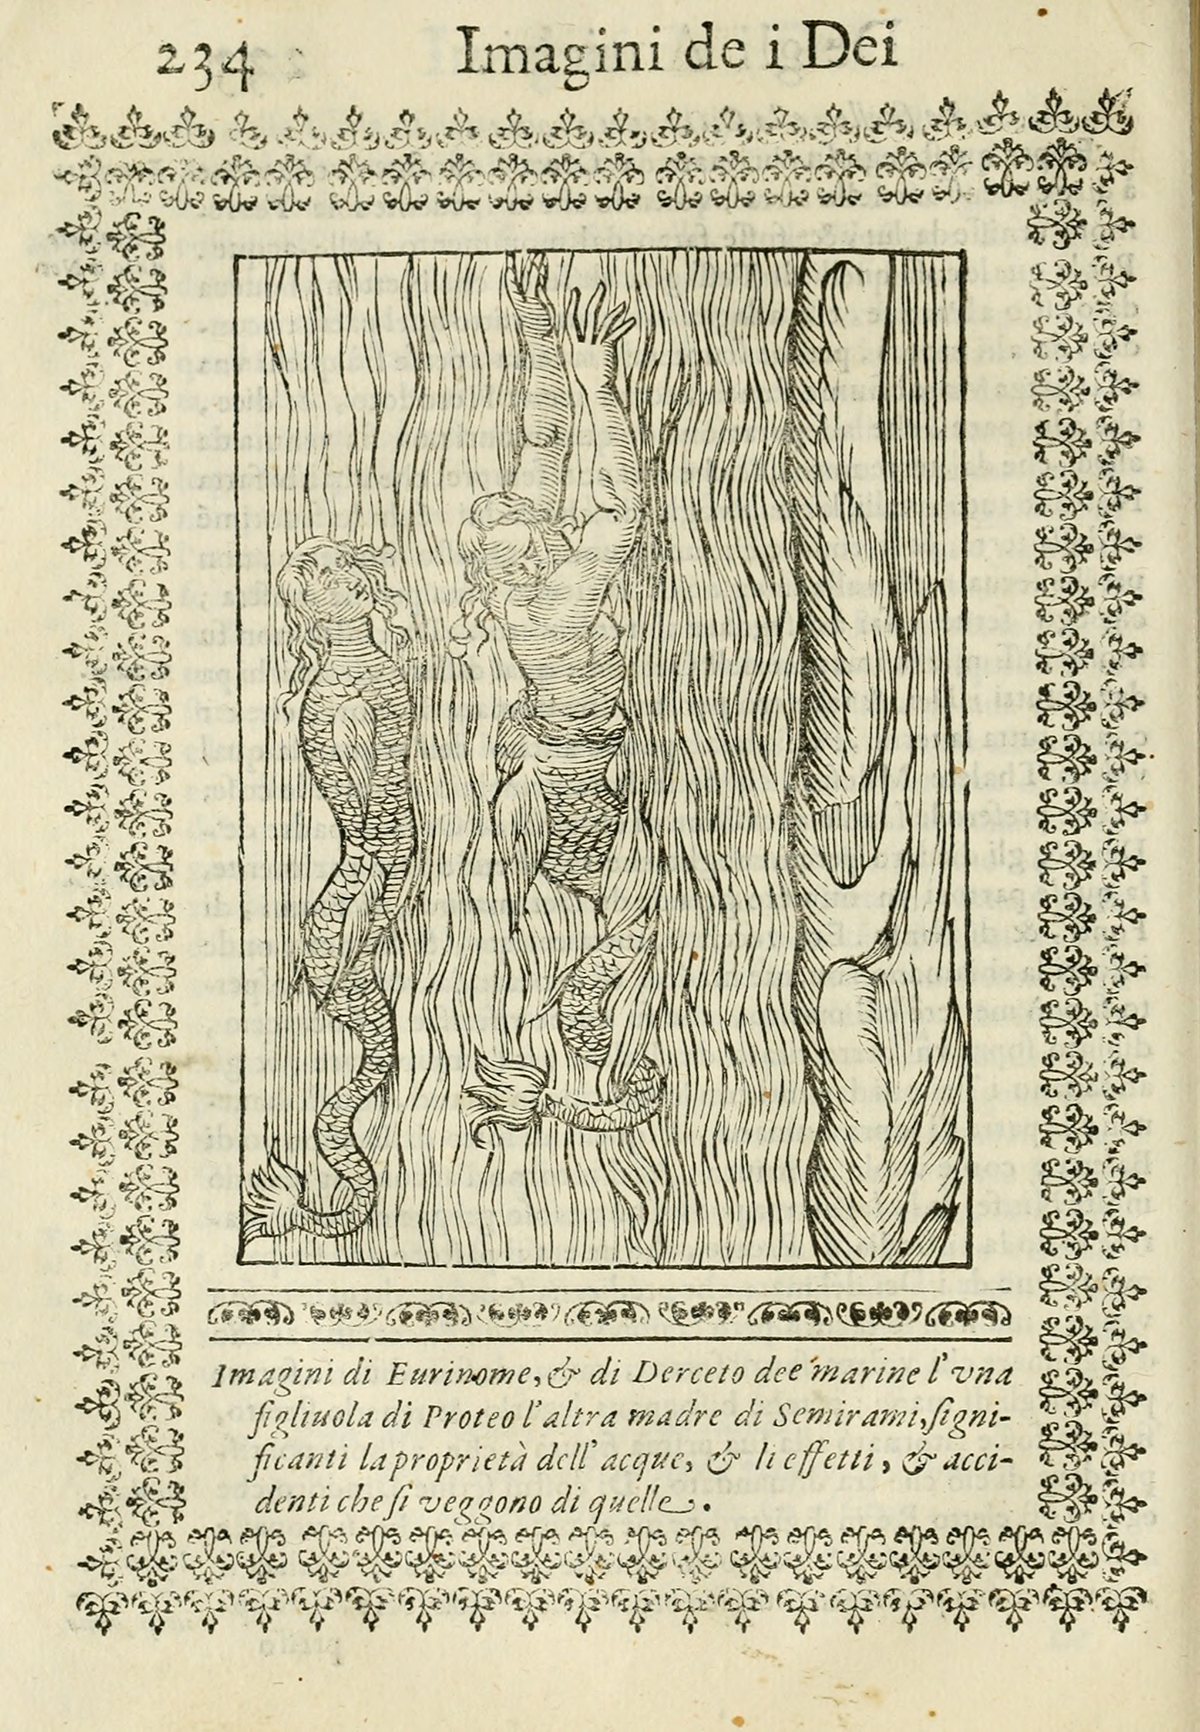 234
Imagini de i Dei
Imagini di Eurinome, & di Derceto dee marine l'vna
figliuola di Proteo l'altra madre di Semirami, signi-
ficanti la proprietà dell' acque, & li effetti, & acci-
denti che si veggono di quelle.